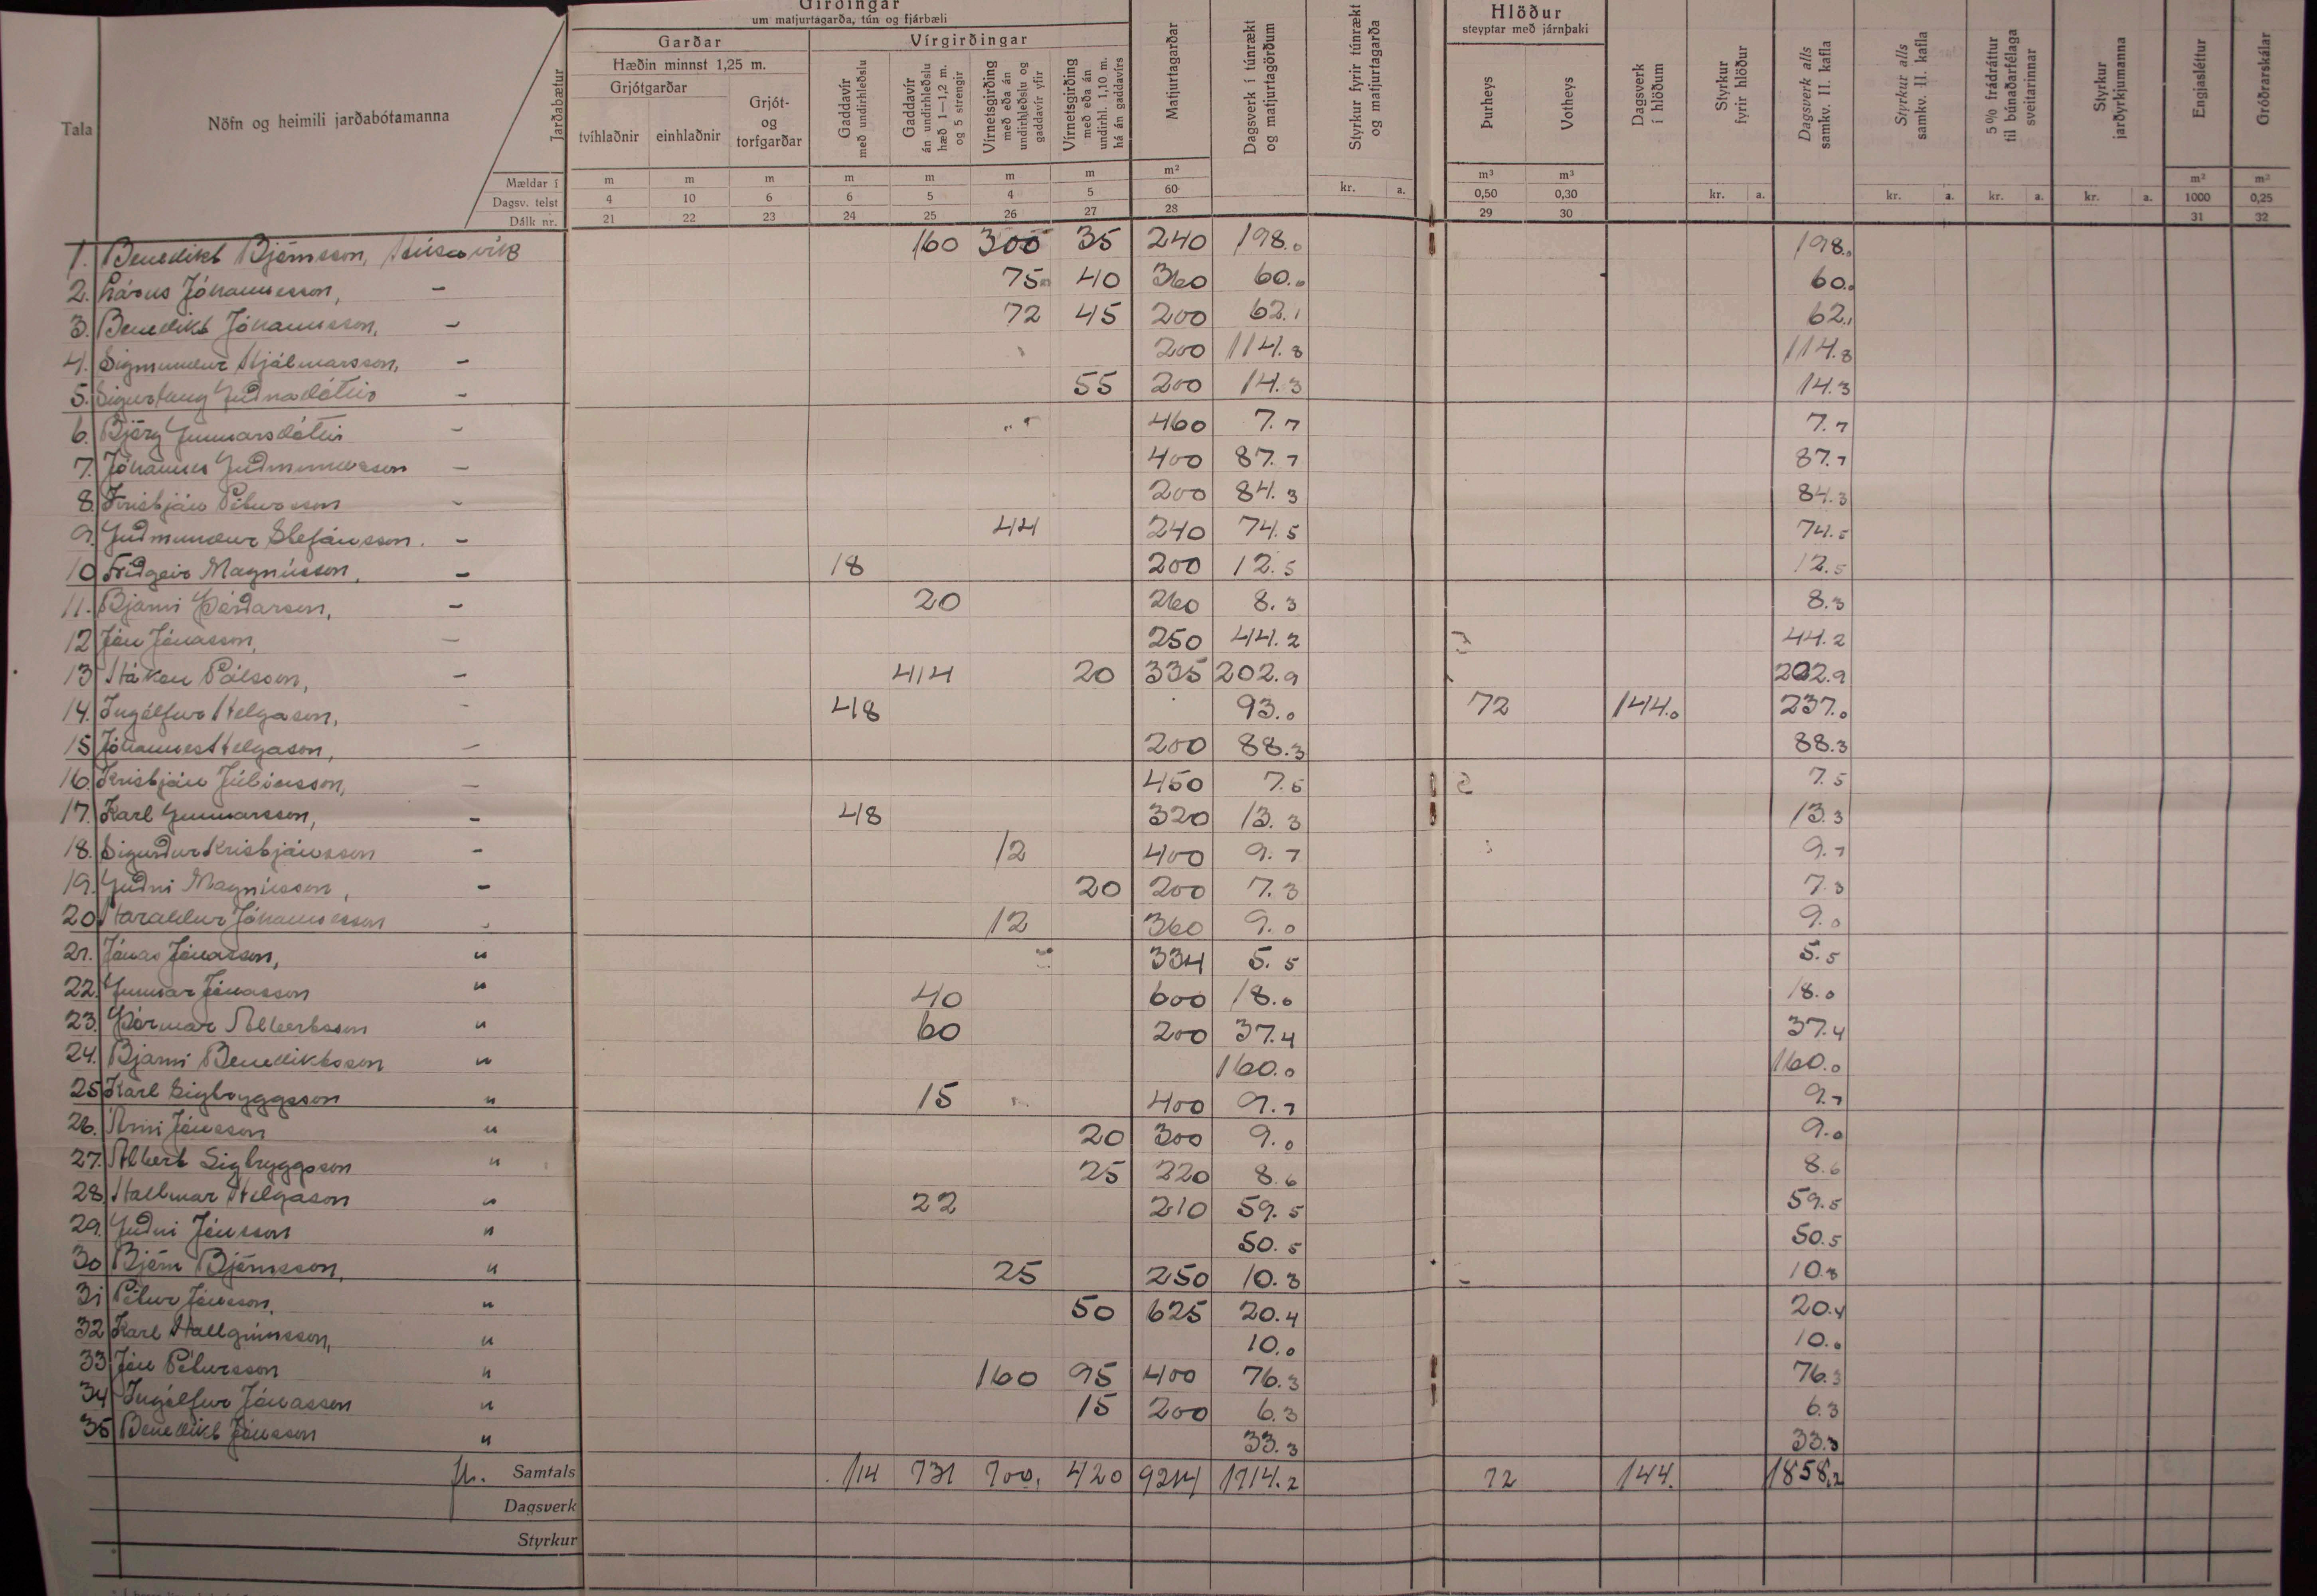 Girðingar
um matjurtagarða, tún og fjárbæli
Hlöður
steyptar með járnþaki
Garðar
Vírgirðingar
Hæðin minnst 1,25 m.
Grjótgarðar
Tala
Nöfn og heimili jarðabótamanna
Jarðabætur
tvíhlaðnir
einhlaðnir
Grjót- og torfgarðar
Gaddavír með undirhleðslu
Gaddavír án undirhleðslu hæð 1—1,2 m. og 5 strengir
Vírnetsgirðing með eða án undirhleðslu og gaddavír yfir
Vírnetsgirðing með eða án undirhl. 1,10 m. há án gaddavírs
Matjurtagarðar
Dagsverk í túnrækt og matjurtagörðum
Styrkur fyrir túnrækt og matjurtagarða
Þurheys
Votheys
Dagsverk í hlöðum
Styrkur fyrir hlöður
Dagsverk alls samkv. II. kafla
Styrkur alls samkv. II. kafla
5% frádráttur til búnaðarfélaga sveitarinnar
Styrkur jarðyrkjumanna
Engjasléttur
Gróðrarskálar
Mældar í m m m m m m m m² kr. a. m³ m³ kr. a. kr. a. kr. a. kr. a. m² m²
Dagsv. telst 4 10 6 6 5 4 5 60 0,50 0,30 1000 0,25
Dálk nr. 21 22 23 24 25 26 27 28 29 30 31 32
1. Benedikt Björnsson, Húsavík 160 300 35 240 198.0 198.0
2. Lárus Jóhannesson, - 75 40 360 60.0 60.0
3. Benedikt Jóhannesson, - 72 45 200 62.1 62.1
4. Sigmundur Hjálmarsson, - 200 114.8 114.8
5. Sigurlaug Guðnadóttir - 55 200 14.3 14.3
6. Björg Gunnarsdóttir - 460 7.7 7.7
7. Jóhannes Guðmundsson - 400 87.7 87.7
8. Kristján Pétursson - 200 84.3 84.3
9. Guðmundur Stefánsson. - 44 240 74.5 74.5
10 Friðgeir Magnússon, - 18 200 12.5 12.5
11. Bjarni Þórðarson, - 20 260 8.3 8.3
12 Jón Jónasson, - 250 44.2 44.2
13 Hákon Pálsson, - 414 20 335 202.9 202.9
14. Ingólfur Helgason, - 48 93.0 72 144.0 237.0
15 Jóhannes Helgason, - 200 88.3 88.3
16. Kristján Júlíusson, - 450 7.5 7.5
17. Karl Gunnarsson, - 48 320 13.3 13.3
18. Sigurður Kristjánsson - 12 400 9.7 9.7
19. Guðni Magnússon, - 20 200 7.3 7.3
20 Haraldur Jóhannesson - 12 360 9.0 9.0
21. Jónas Jónasson, " 334 5.5 5.5
22. Gunnar Jónasson " 40 600 18.0 18.0
23. Þórmar Albertsson " 60 200 37.4 37.4
24. Bjarni Benediktsson " 160.0 160.0
25 Karl Sigtryggsson " 15 400 9.7 9.7
26. Árni Jónsson " 20 300 9.0 9.0
27. Albert Sigtryggsson " 25 220 8.6 8.6
28 Hallmar Helgason " 22 210 59.5 59.5
29. Guðni Jónsson " 50.5 50.5
30 Björn Björnsson, " 25 250 10.3 10.3
31 Pétur Jónsson, " 50 625 20.4 20.4
32 Karl Hallgrímsson, " 10.0 10.0
33 Jón Pétursson " 160 95 400 76.3 76.3
34 Ingólfur Jónasson " 15 200 6.3 6.3
35 Benedikt Jónsson " 33.3 33.3
Samtals 114 731 700. 420 9214 1714.2 72 144. 1858.2
Dagsverk
Styrkur